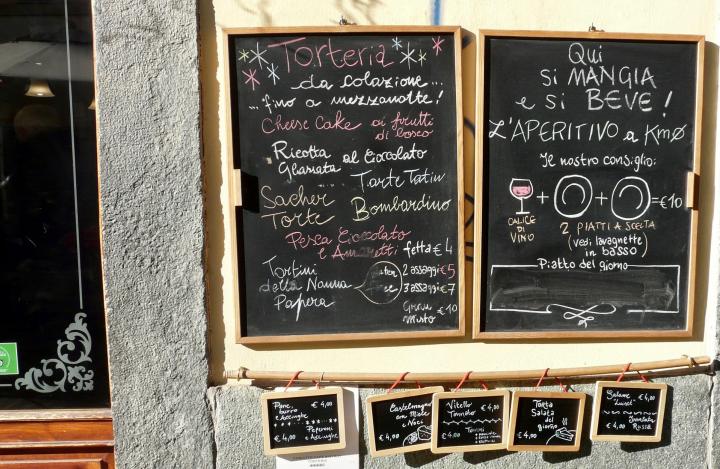 Torteria
da colazione...
...fino a mezzanotte!
Cheese Cake ai frutti
di bosco
Ricotta al Cioccolato
Glassata
Tarte Tatin
Sacher
Torte
Bombardino
Pesca Cioccolato
e Amaretti
fetta € 4
Tortini
della Nonna
Papera
2 assaggi € 5
3 assaggi € 7
Gran
Misto € 10
Qui
si MANGIA
e si BEVE!
L'APERITIVO a KmØ
Il nostro consiglio:
+ + = € 10
CALICE
DI
VINO
2 PIATTI A SCELTA
(vedi lavagnette
in basso)
Piatto del giorno
Pane,
burro
e Acciughe
€ 4,00
Peperoni
e Acciughe
€ 4,00
Castelmagno
con Miele
e Noci
€ 4,00
Vitello
Tonnato
€ 4,00
Tomini
€ 4,00
Torta
Salata
del
giorno
€ 4,00
Salame
€ 4,00
Insalata
Russa
€ 4,00